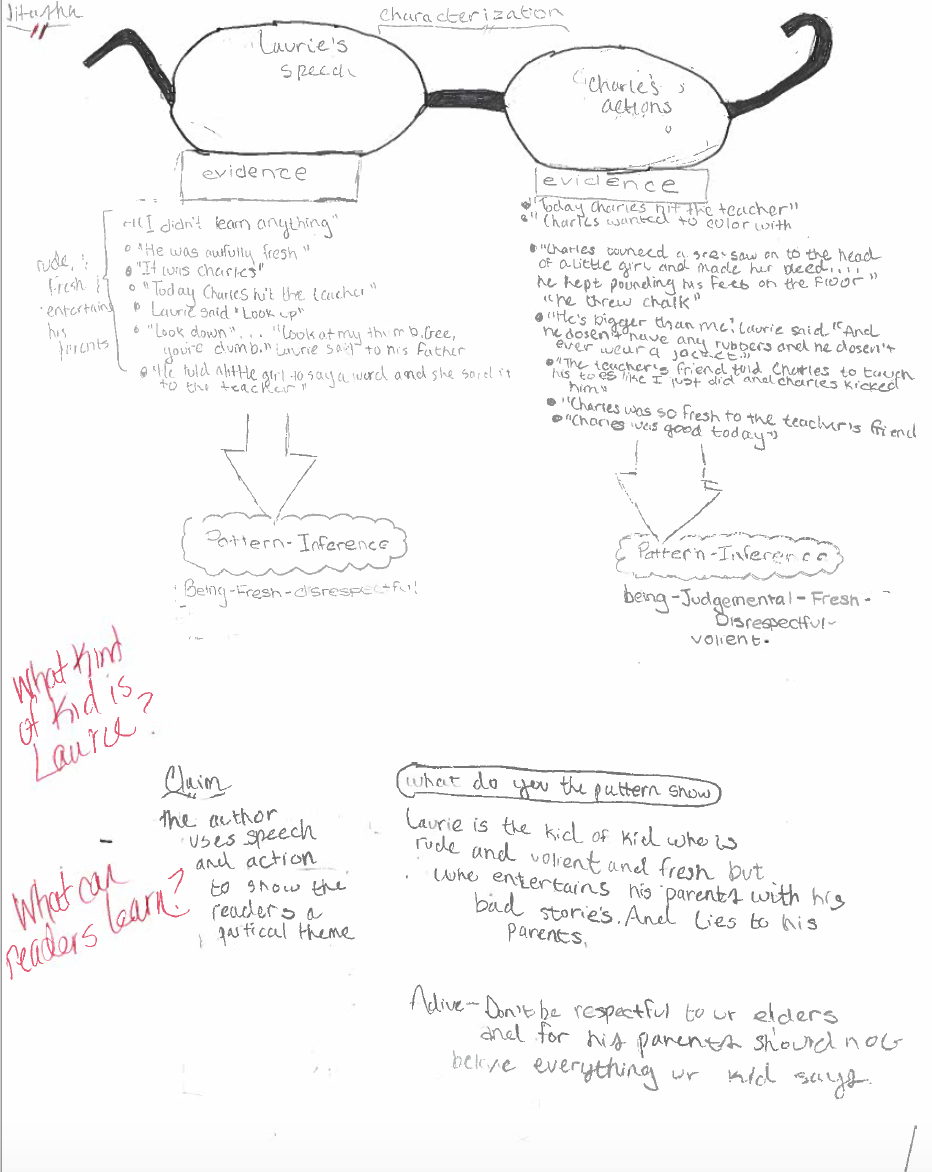 Jitasha
characterization
Laurie's
speech
Charlie's
actions
evidence
"I didn't learn anything"
"He was awfully fresh"
"It was charles"
"Today Charles hit the teacher"
Laurie said "Look up"
"Look down"... "Look at my thumb. Gee,
you're dumb." Laurie say to his father
"He told alittle girl to say a word and she said it
to the teacher"
rude,
fresh
entertains
his
parents
Pattern-Inference
Being-Fresh-disrespectful
evidence
"Today Charles hit the teacher"
"Charles wanted to color with
"Charles bounced a see-saw on to the head
of a little girl and made her bleed....
he kept pounding his feet on the floor"
"he threw chalk"
"He's bigger than me" Laurie said "And
he dosen't have any rubbers and he dosen't
ever wear a jacket."
"The teacher's friend told Charles to touch
his toes like I just did and charles kicked
him"
"Charles was so fresh to the teacher's friend
"Charles was good today"
Pattern-Inference
being-Judgemental-Fresh-
Disrespectful-
volient.
What Kind
of Kid is
Laurie?
What can
readers learn?
Claim
the author
uses speech
and action
to show the
readers a
partical theme
what do you the pattern show
Laurie is the kid of kid who is
rude and volient and fresh but
who entertains his parents with his
bad stories. And Lies to his
Parents.
Adive- Don't be respectful to ur elders
and for his parents should not
belive everything ur kid says.